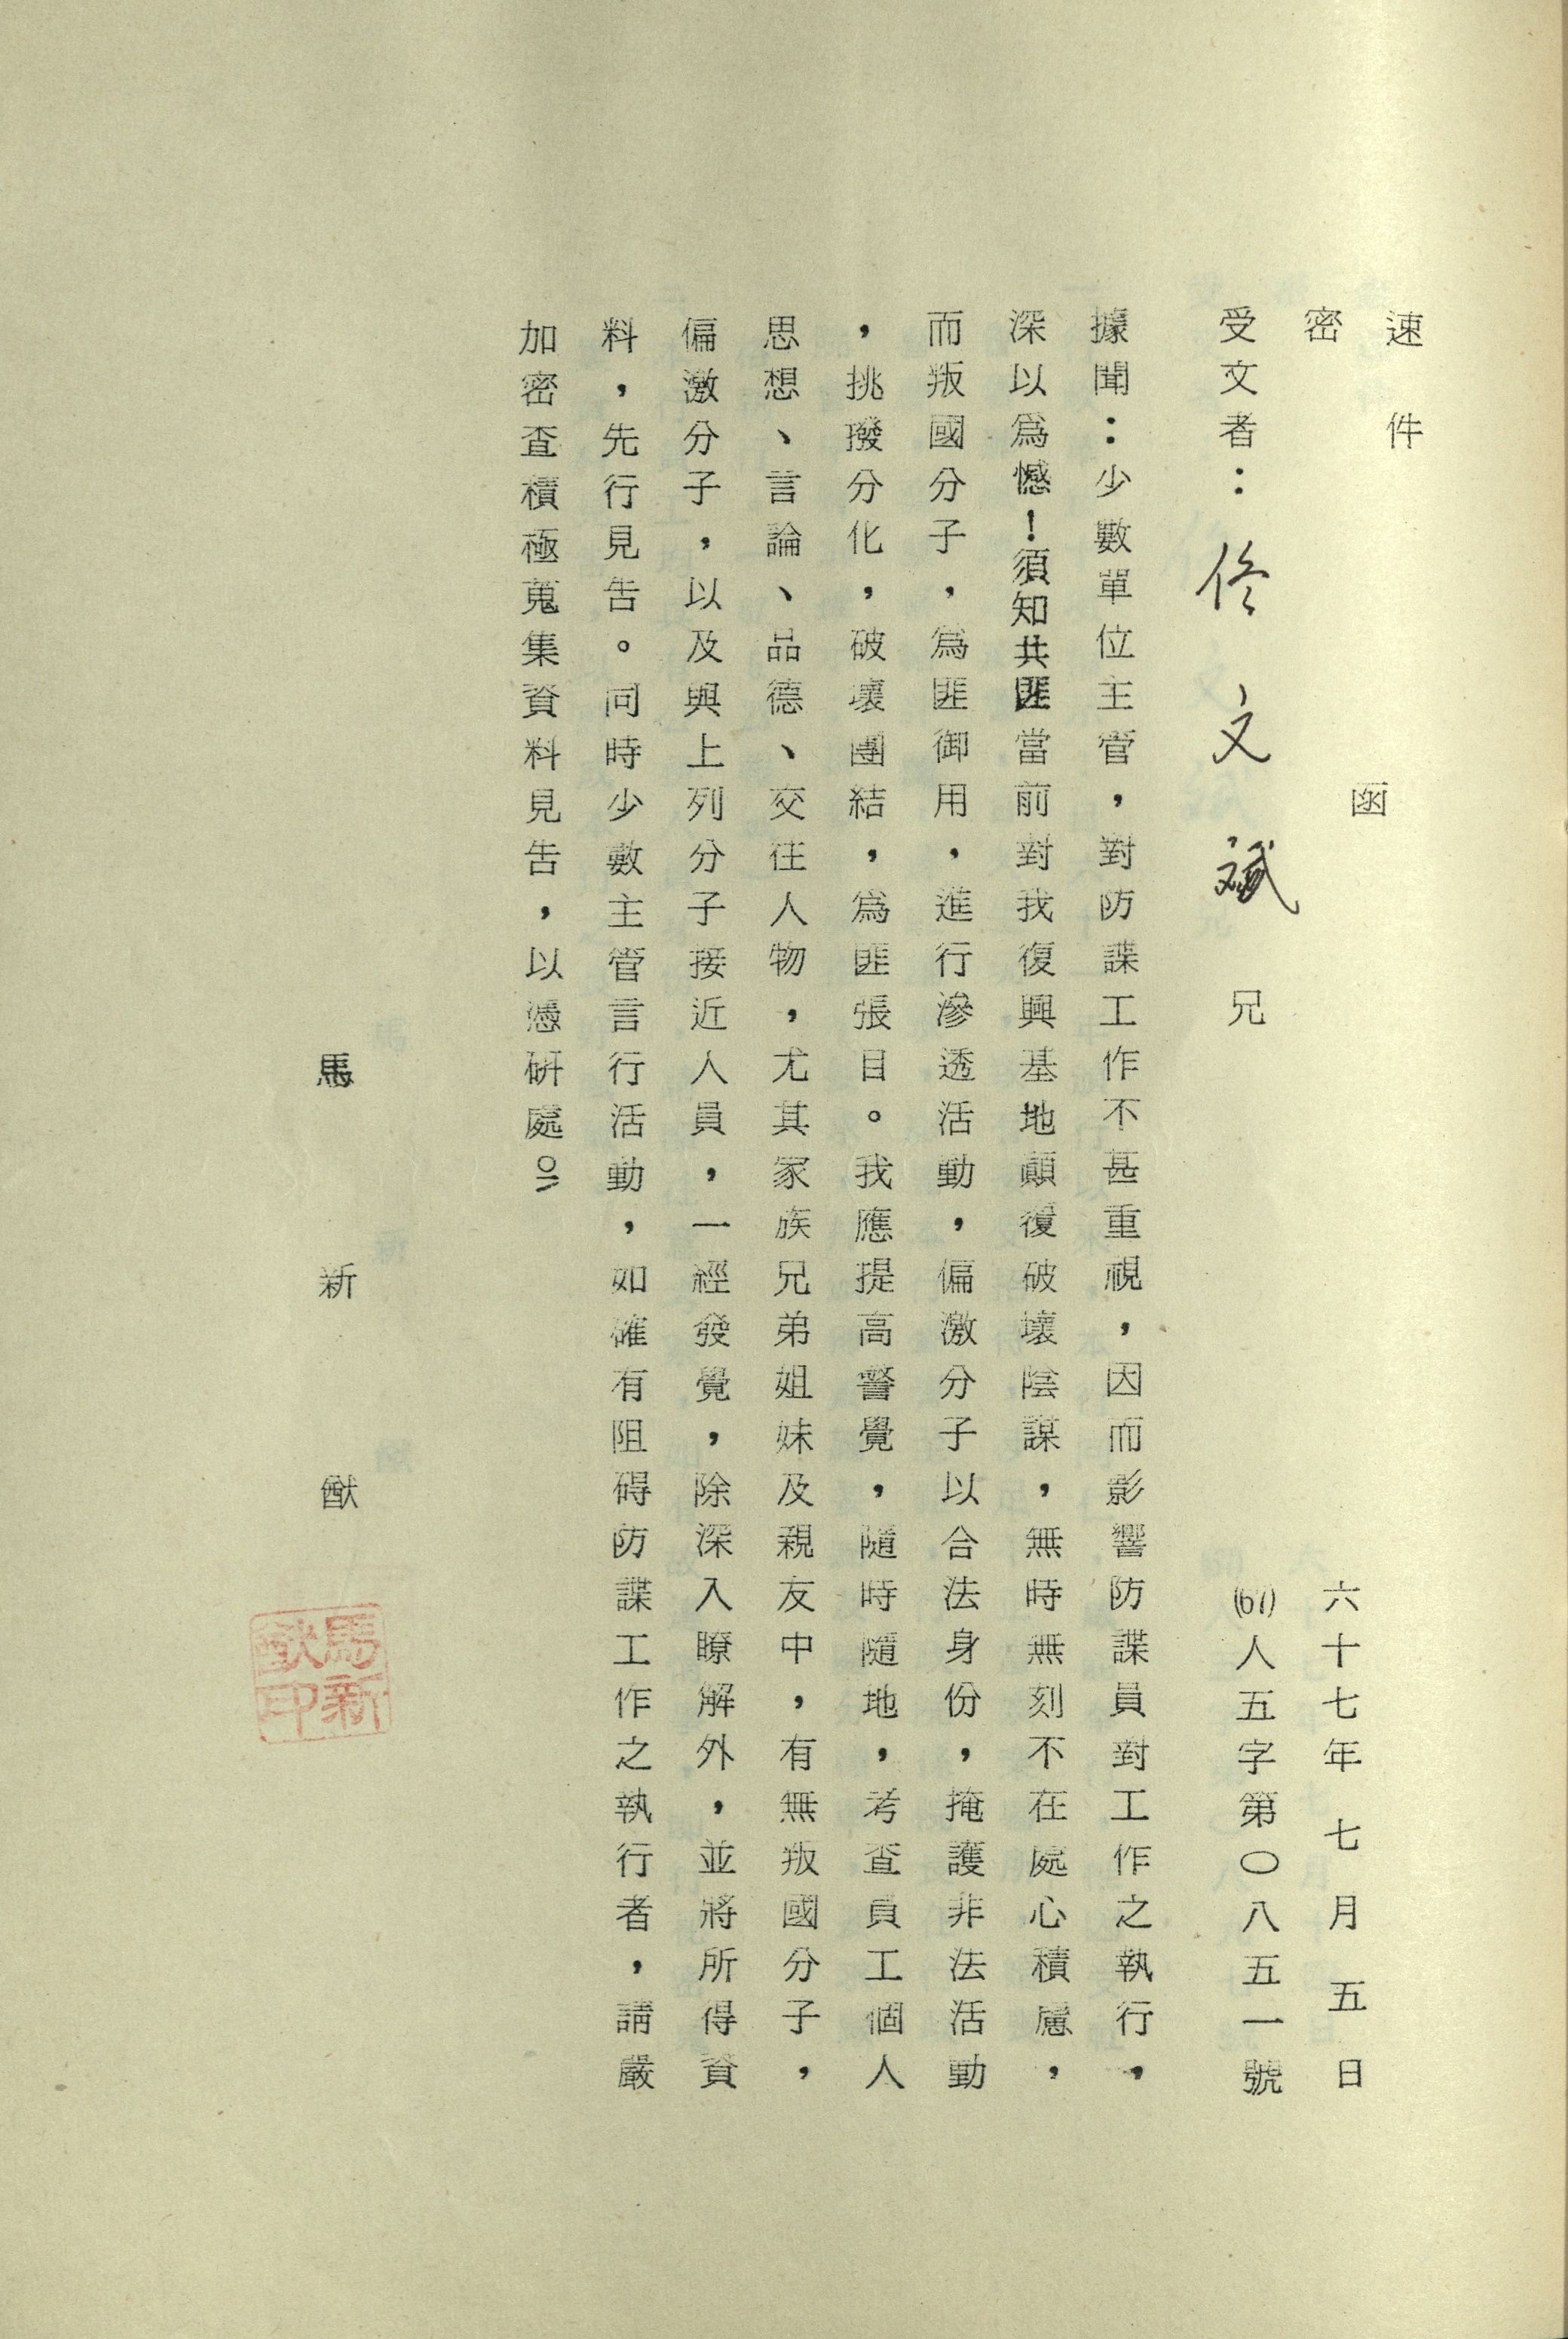 速件
密
函
六十七年七月五日
(67)人五字第〇八五一號
受文者：佟文斌兄
據聞：少數單位主管，對防諜工作不甚重視，因而影響防諜員對工作之執行，
深以爲憾！須知共匪當前對我復興基地顚覆破壞陰謀，無時無刻不在處心積慮，
而叛國分子，爲匪御用，進行滲透活動，偏激分子以合法身份，掩護非法活動
，挑撥分化，破壞團結，爲匪張目。我應提高警覺，隨時隨地，考查員工個人
思想、言論、品德、交往人物，尤其家族兄弟姐妹及親友中，有無叛國分子，
偏激分子，以及與上列分子接近人員，一經發覺，除深入瞭解外，並將所得資
料，先行見告。同時少數主管言行活動，如確有阻碍防諜工作之執行者，請嚴
加密查積極蒐集資料見告，以憑硏處。
馬新猷
馬新猷印